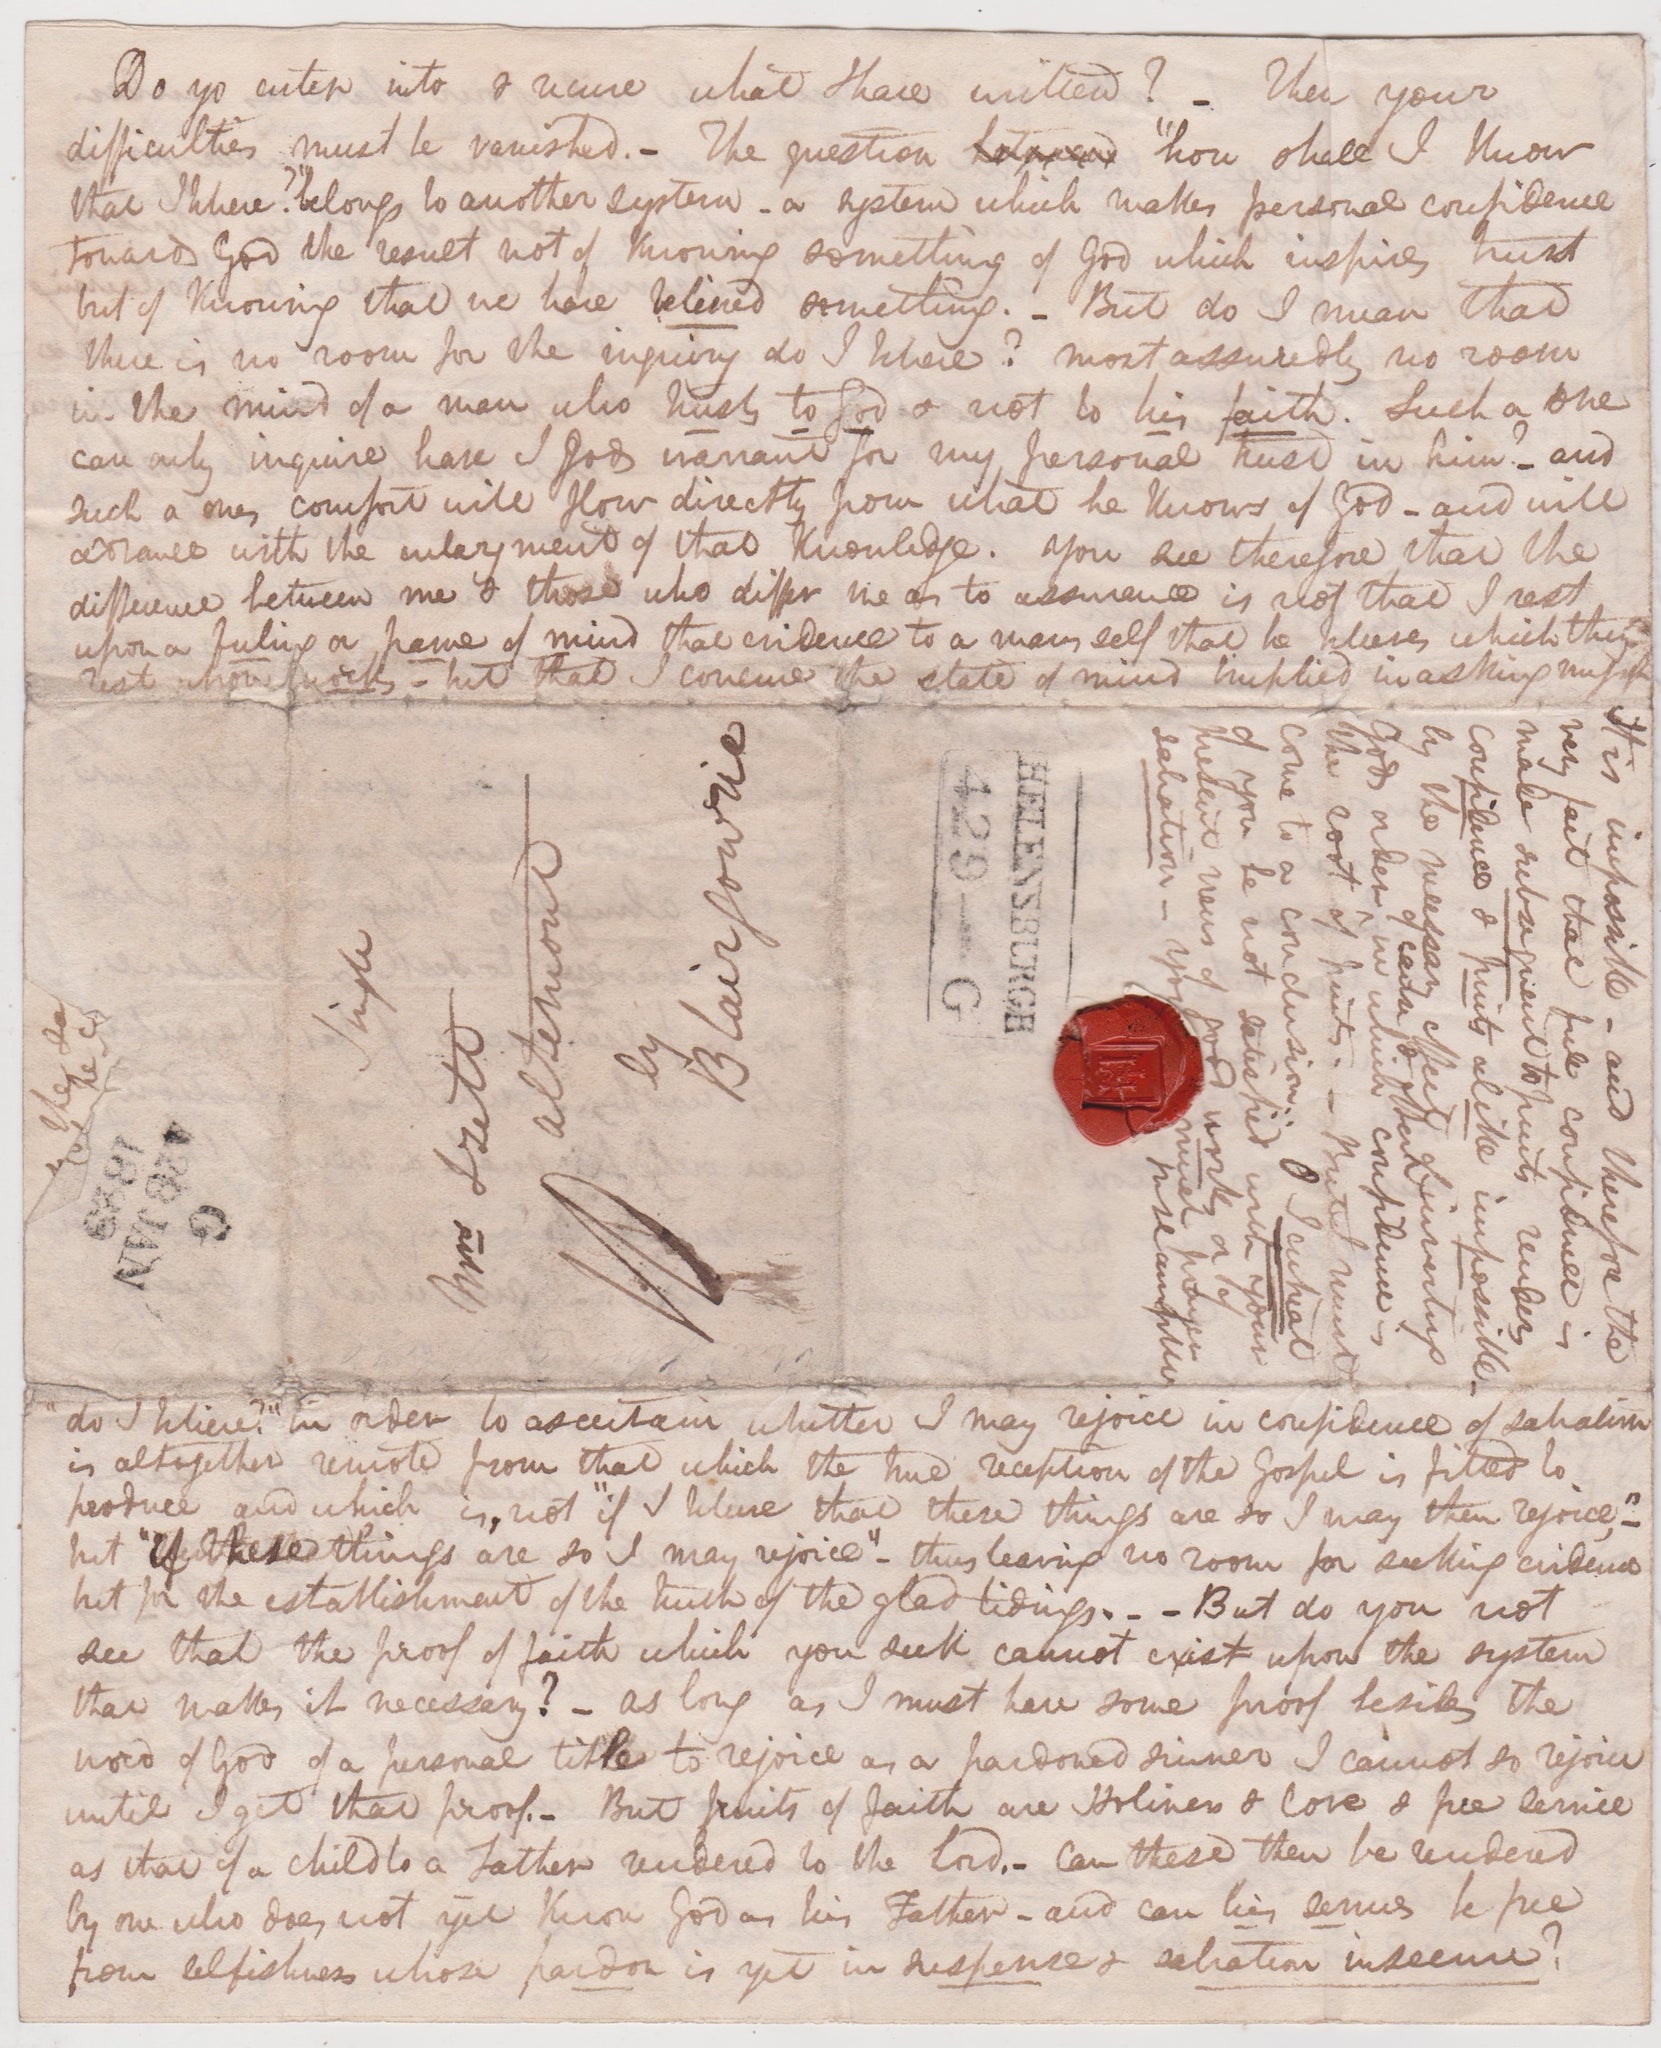 Do yo enter into & receive what I have written? - Then your
difficulties must be vanished. - The question "how shall I Know
that I believe?" belongs to another system - a system which makes personal confidence
towards God the result not of Knowing something of God which inspires trust
but of Knowing that we have believed something. - But do I mean that
there is no room for the inquiry do I believe? most assuredly no room
in the mind of a man who trusts to God & not to his faith. Such a one
can only inquire have I Gods warrant for my personal trust in him? - and
such a ones comfort will flow directly from what he Knows of God - and will
advance with the enlargement of that Knowledge. You see therefore that the
difference between me & those who differ me as to assurance is not that I rest
upon a feeling or frame of mind that evidence to a mans self that he believes which they
rest upon works - but that I conceive the state of mind implied in asking myself
It is impossible - and therefore the
very fact that full confidence is
made subsequent to fruits renders
confidence & fruits alike impossible -
by the necessary effect of inverting
Gods order of cause & effect in which confidence is
the root of fruits. - But I must
come to a conclusion. O I entreat
of you be not satisfied with your
present views of God works or of
salvation - you must have
HELENSBURGH
429 - G
Mrs Izett
Altemont
by
Blairgowrie
Single
G
18 JAN
1828
"do I believe?" in order to ascertain whether I may rejoice in confidence of salvation
is altogether remote from that which the true reception of the Gospel is fitted to
produce and which is, not "if I believe that these things are so I may then rejoice," -
but "If these things are so I may rejoice" - thus leaving no room for seeking evidence
but for the establishment of the truth of the glad tidings. - - But do you not
see that the proof of faith which you seek cannot exist upon the system
that makes it necessary? - as long as I must have some proof besides the
word of God of a personal title to rejoice as a pardoned sinner I cannot so rejoice
until I get that proof. - But fruits of faith are Holiness & Love & free service
as that of a child to a Father rendered to the Lord. - Can these then be rendered
by one who does not yet Know God as his Father - and can his service be free
from selfishness whose pardon is yet in suspense & salvation insecure?